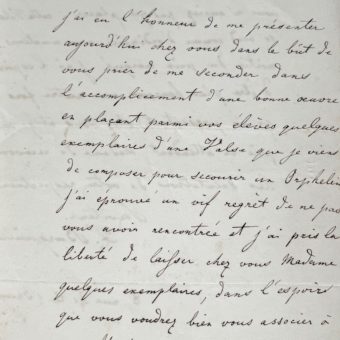 j'ai eu l'honneur de me présenter
aujourd'hui chez vous dans le bût de
vous prier de me seconder dans
l'accomplicement d'une bonne œuvre
en plaçant parmi vos élèves quelques
exemplaires d'une Valse que je viens
de composer pour secourir un Orphelin
j'ai éprouvé un vif regret de ne pas
vous avoir rencontrée et j'ai pris la
liberté de laisser chez vous Madame
quelques exemplaires, dans l'espoir
que vous voudrez bien vous associer à